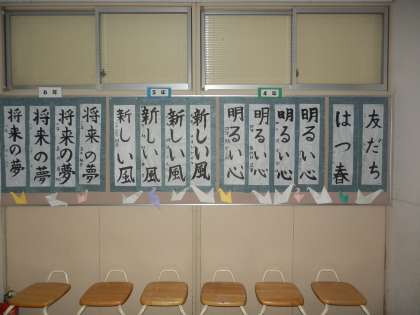 6年
5年
4年
将来の夢
将来の夢
将来の夢
将来の夢
新しい風
新しい風
新しい風
新しい風
明るい心
明るい心
明るい心
明るい心
はつ春
友だち